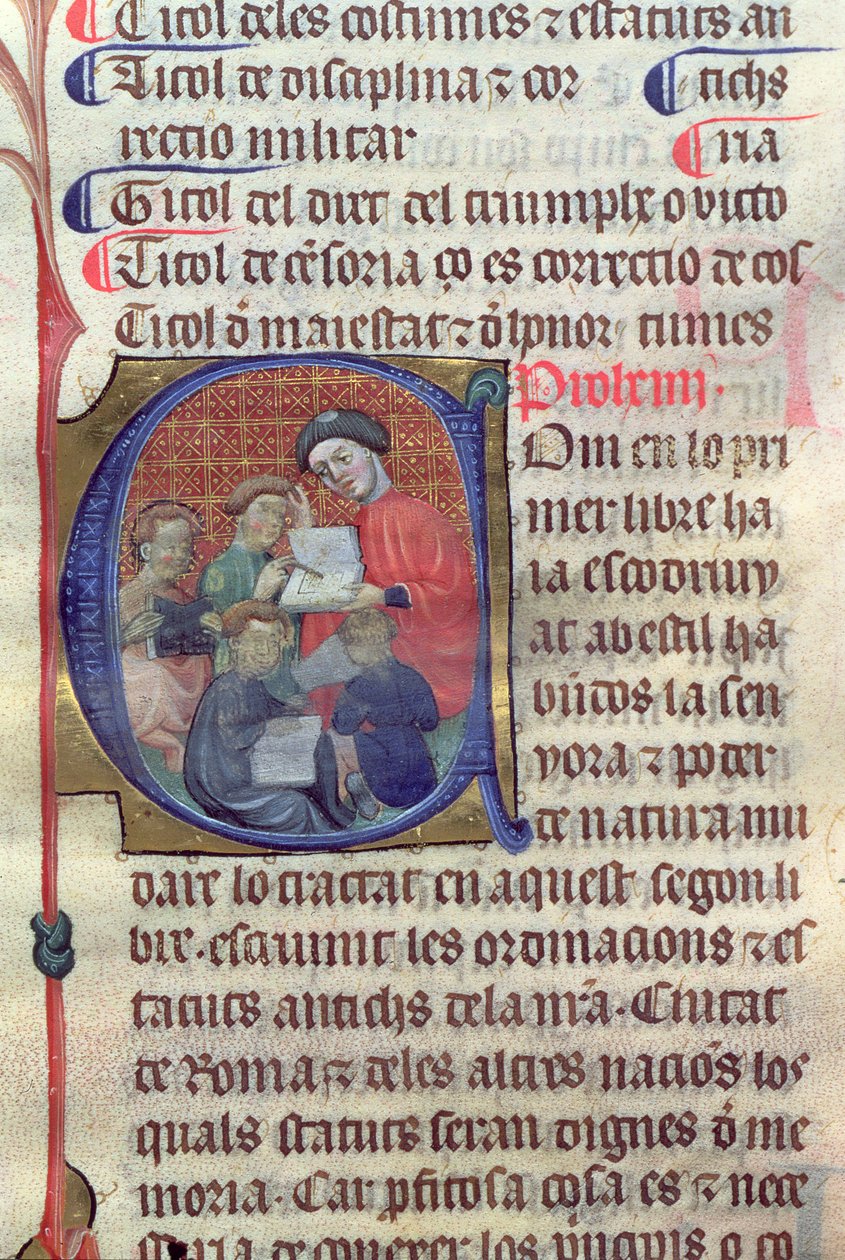 Titol deles costumes ⁊ estatuts an
Titol de disciplina ⁊ cor tichs
rectio militar ria
Titol del dret del triumphe o victo
Titol de cẽsoria ço es correctio de cos
Titol đ maiestat ⁊ đ honor tumes
Prolxiij.
Om en lo pri
mer libre ha
ia escodriny
at ab estil ha
bũdos la sen
yora ⁊ poder
de natura mu
dare lo tractat en aquest segon li
bre. escrivint les ordinacions ⁊ es
tatuts antichs dela nr̃a. Ciutat
de Roma ⁊ deles altres nacioñs los
quals statuts seran dignes đ me
moria. Car ꝓfitosa cosa es ⁊ nece
ssaria de conexer los